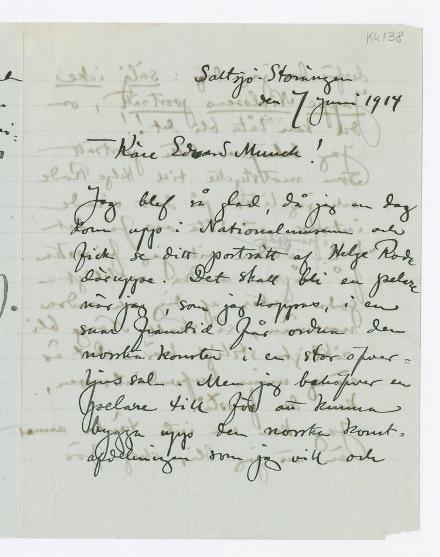 K4138
Saltsjö-Storängen
den 7 juni 1914
Käre Edvard Munch!
Jag blef så glad, då jag en dag
kom upp i Nationalmuseum och
fick se ditt porträtt af Helge Rode
däruppe. Det skall bli en pelare
när jag, som jag hoppas, i en
snar framtid får ordna den
norska konsten i en stor öfver-
ljussal. Men jag behöfver en
pelare till för att kunna
bygga upp den norska konst-
afdelningen som jag vill och